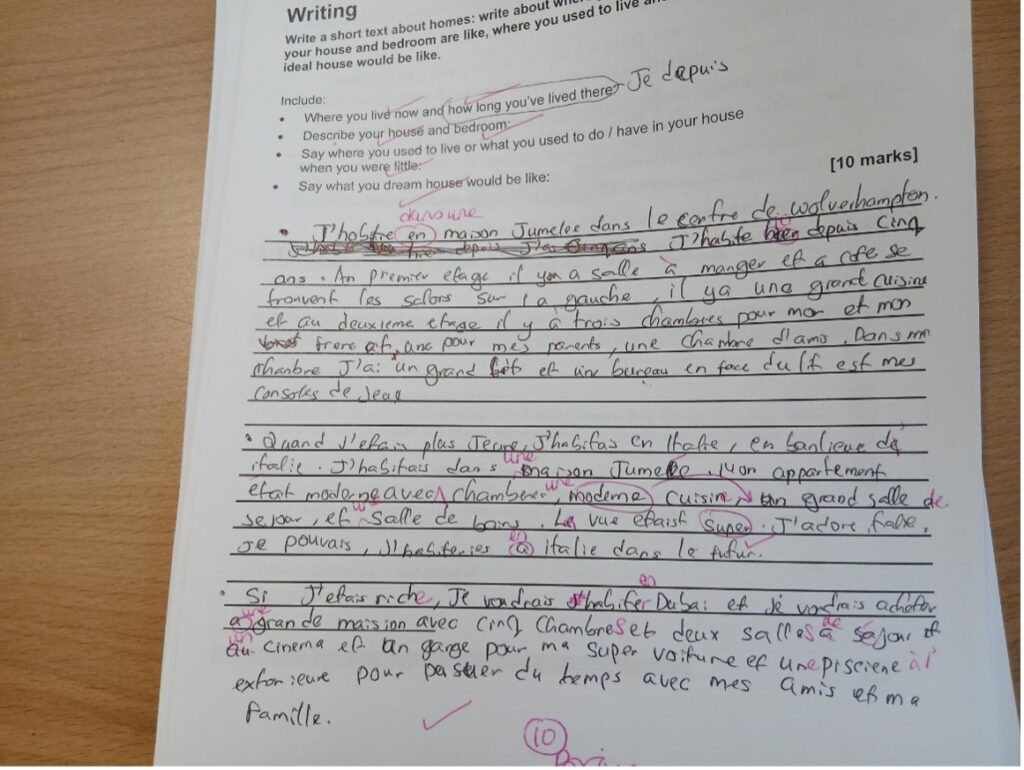 Writing
Write a short text about homes: write about
your house and bedroom are like, where you used to live
ideal house would be like.
Include:
• Where you live now and how long you've lived there: Je depuis
• Describe your house and bedroom:
• Say where you used to live or what you used to do / have in your house
when you were little:
• Say what you dream house would be like:
[10 marks]
dans une
• J'habitre en maison Jumelee dans le centre de wolverhampton.
J'habite bien depuis Cinq
ans. An premier etage il y a salle à manger et a cote se
trouvent les salors sur la gauche, il ya une grand cuisine
et au deuxieme etage il y à trois chambres pour mor et mon
frere et, une pour mes parents, une chambre d'amis. Dans ma
chanbre J'ai un grand et une bureau en face du lt est mes
Consoles de Jeux
• Quand J'etais plus Jeune, J'habitas en Italie, en banlieue de
une
italie. J'habitais dans maison Jumelee. Mon appartement
une
etait moderne avec chamberer, moderne cuisin, un grand salle de
une
sejour, et salle de bains. La vue etaist super. J'adore Italie,
en
Je pouvais, J'habiteries à italie dans le futur.
en
• Si J'etais riche, Je voudrais habiter Dubai et je voudrais acheter
une
a grande maision avec cinq chambres et deux salles à sejour et
un de
au cinema et un garge pour ma super voiture et une pisciene à l'
exterieure pour passer du temps avec mes amis et ma
famille.
10